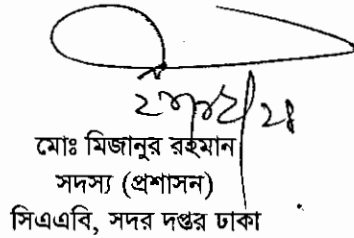 মোঃ মিজানুর রহমান
সদস্য (প্রশাসন)
সিএএবি, সদর দপ্তর ঢাকা